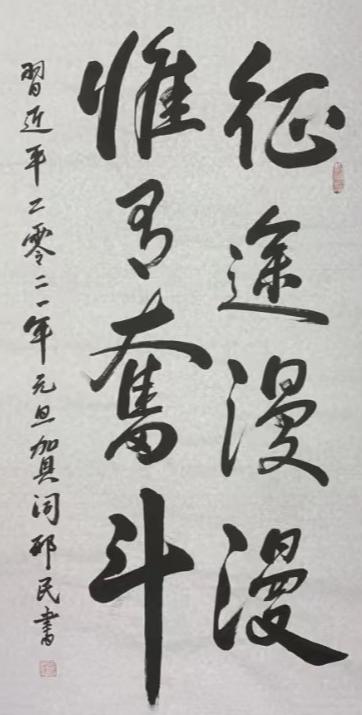 征途漫漫
惟有奮斗
習近平二零二一年元旦賀词邵民書